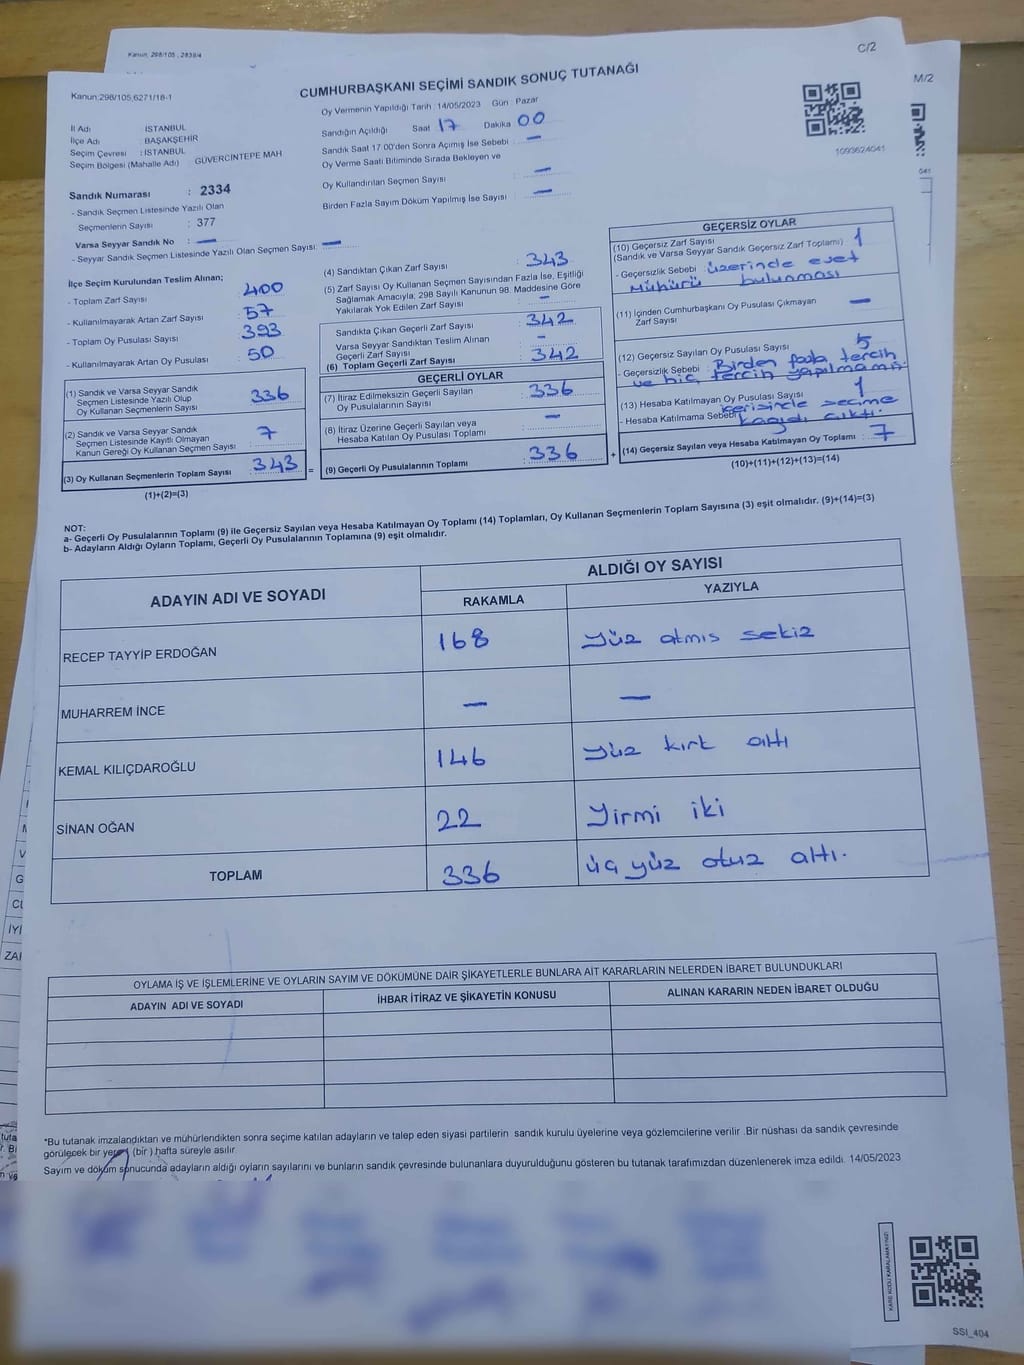 Kanun; 298/105 , 2839/4
C/2
M/2
Kanun;298/105,6271/18-1
CUMHURBAŞKANI SEÇİMİ SANDIK SONUÇ TUTANAĞI
İl Adı : İSTANBUL
İlçe Adı : BAŞAKŞEHİR
Seçim Çevresi : İSTANBUL
Seçim Bölgesi (Mahalle Adı) : GÜVERCİNTEPE MAH
Sandık Numarası : 2334
- Sandık Seçmen Listesinde Yazılı Olan
Seçmenlerin Sayısı : 377
Varsa Seyyar Sandık No : —
- Seyyar Sandık Seçmen Listesinde Yazılı Olan Seçmen Sayısı: —
Oy Vermenin Yapıldığı Tarih : 14/05/2023 Gün : Pazar
Sandığın Açıldığı Saat 17 Dakika 00
Sandık Saat 17 00'den Sonra Açımış İse Sebebi : —
Oy Verme Saati Bitiminde Sırada Bekleyen ve
Oy Kullandırılan Seçmen Sayısı : —
Birden Fazla Sayım Döküm Yapılmış İse Sayısı : —
1093624041
041
İlçe Seçim Kurulundan Teslim Alınan;
- Toplam Zarf Sayısı 400
- Kullanılmayarak Artan Zarf Sayısı 57
- Toplam Oy Pusulası Sayısı 393
- Kullanılmayarak Artan Oy Pusulası 50
(1) Sandık ve Varsa Seyyar Sandık
Seçmen Listesinde Yazılı Olup
Oy Kullanan Seçmenlerin Sayısı 336
(2) Sandık ve Varsa Seyyar Sandık
Seçmen Listesinde Kayıtlı Olmayan
Kanun Gereği Oy Kullanan Seçmen Sayısı 7
(3) Oy Kullanan Seçmenlerin Toplam Sayısı 343 =
(1)+(2)=(3)
(4) Sandıktan Çıkan Zarf Sayısı 343
(5) Zarf Sayısı Oy Kullanan Seçmen Sayısından Fazla İse, Eşitliği
Sağlamak Amacıyla; 298 Sayılı Kanunun 98. Maddesine Göre
Yakılarak Yok Edilen Zarf Sayısı : —
Sandıkta Çıkan Geçerli Zarf Sayısı 342
Varsa Seyyar Sandıktan Teslim Alınan
Geçerli Zarf Sayısı : —
(6) Toplam Geçerli Zarf Sayısı 342
GEÇERLİ OYLAR
(7) İtiraz Edilmeksizin Geçerli Sayılan
Oy Pusulalarının Sayısı 336
(8) İtiraz Üzerine Geçerli Sayılan veya
Hesaba Katılan Oy Pusulası Toplamı : —
(9) Geçerli Oy Pusulalarının Toplamı 336 +
GEÇERSİZ OYLAR
(10) Geçersiz Zarf Sayısı
(Sandık ve Varsa Seyyar Sandık Geçersiz Zarf Toplamı) 1
- Geçersizlik Sebebi : üzerinde evet
mühürü bulunması
(11) İçinden Cumhurbaşkanı Oy Pusulası Çıkmayan
Zarf Sayısı —
(12) Geçersiz Sayılan Oy Pusulası Sayısı 5
- Geçersizlik Sebebi : Birden fazla tercih
ve hiç tercih yapılmamış.
(13) Hesaba Katılmayan Oy Pusulası Sayısı 1
- Hesaba Katılmama Sebebi içerisinde seçime
kağıdı çıktı.
(14) Geçersiz Sayılan veya Hesaba Katılmayan Oy Toplamı 7
(10)+(11)+(12)+(13)=(14)
NOT:
a- Geçerli Oy Pusulalarının Toplamı (9) ile Geçersiz Sayılan veya Hesaba Katılmayan Oy Toplamı (14) Toplamları, Oy Kullanan Seçmenlerin Toplam Sayısına (3) eşit olmalıdır. (9)+(14)=(3)
b- Adayların Aldığı Oyların Toplamı, Geçerli Oy Pusulalarının Toplamına (9) eşit olmalıdır.
ADAYIN ADI VE SOYADI
ALDIĞI OY SAYISI
RAKAMLA YAZIYLA
RECEP TAYYİP ERDOĞAN 168 yüz atmıs sekiz
MUHARREM İNCE — —
KEMAL KILIÇDAROĞLU 146 yüz kırk altı
SİNAN OĞAN 22 yirmi iki
TOPLAM 336 üç yüz otuz altı.
OYLAMA İŞ VE İŞLEMLERİNE VE OYLARIN SAYIM VE DÖKÜMÜNE DAİR ŞİKAYETLERLE BUNLARA AİT KARARLARIN NELERDEN İBARET BULUNDUKLARI
ADAYIN ADI VE SOYADI İHBAR İTİRAZ VE ŞİKAYETİN KONUSU ALINAN KARARIN NEDEN İBARET OLDUĞU
*Bu tutanak imzalandıktan ve mühürlendikten sonra seçime katılan adayların ve talep eden siyasi partilerin sandık kurulu üyelerine veya gözlemcilerine verilir .Bir nüshası da sandık çevresinde
görülecek bir yere 1 (bir ) hafta süreyle asılır.
Sayım ve döküm sonucunda adayların aldığı oyların sayılarını ve bunların sandık çevresinde bulunanlara duyurulduğunu gösteren bu tutanak tarafımızdan düzenlenerek imza edildi. 14/05/2023
KARE KODU KARALAMAYINIZ!
SSI_404